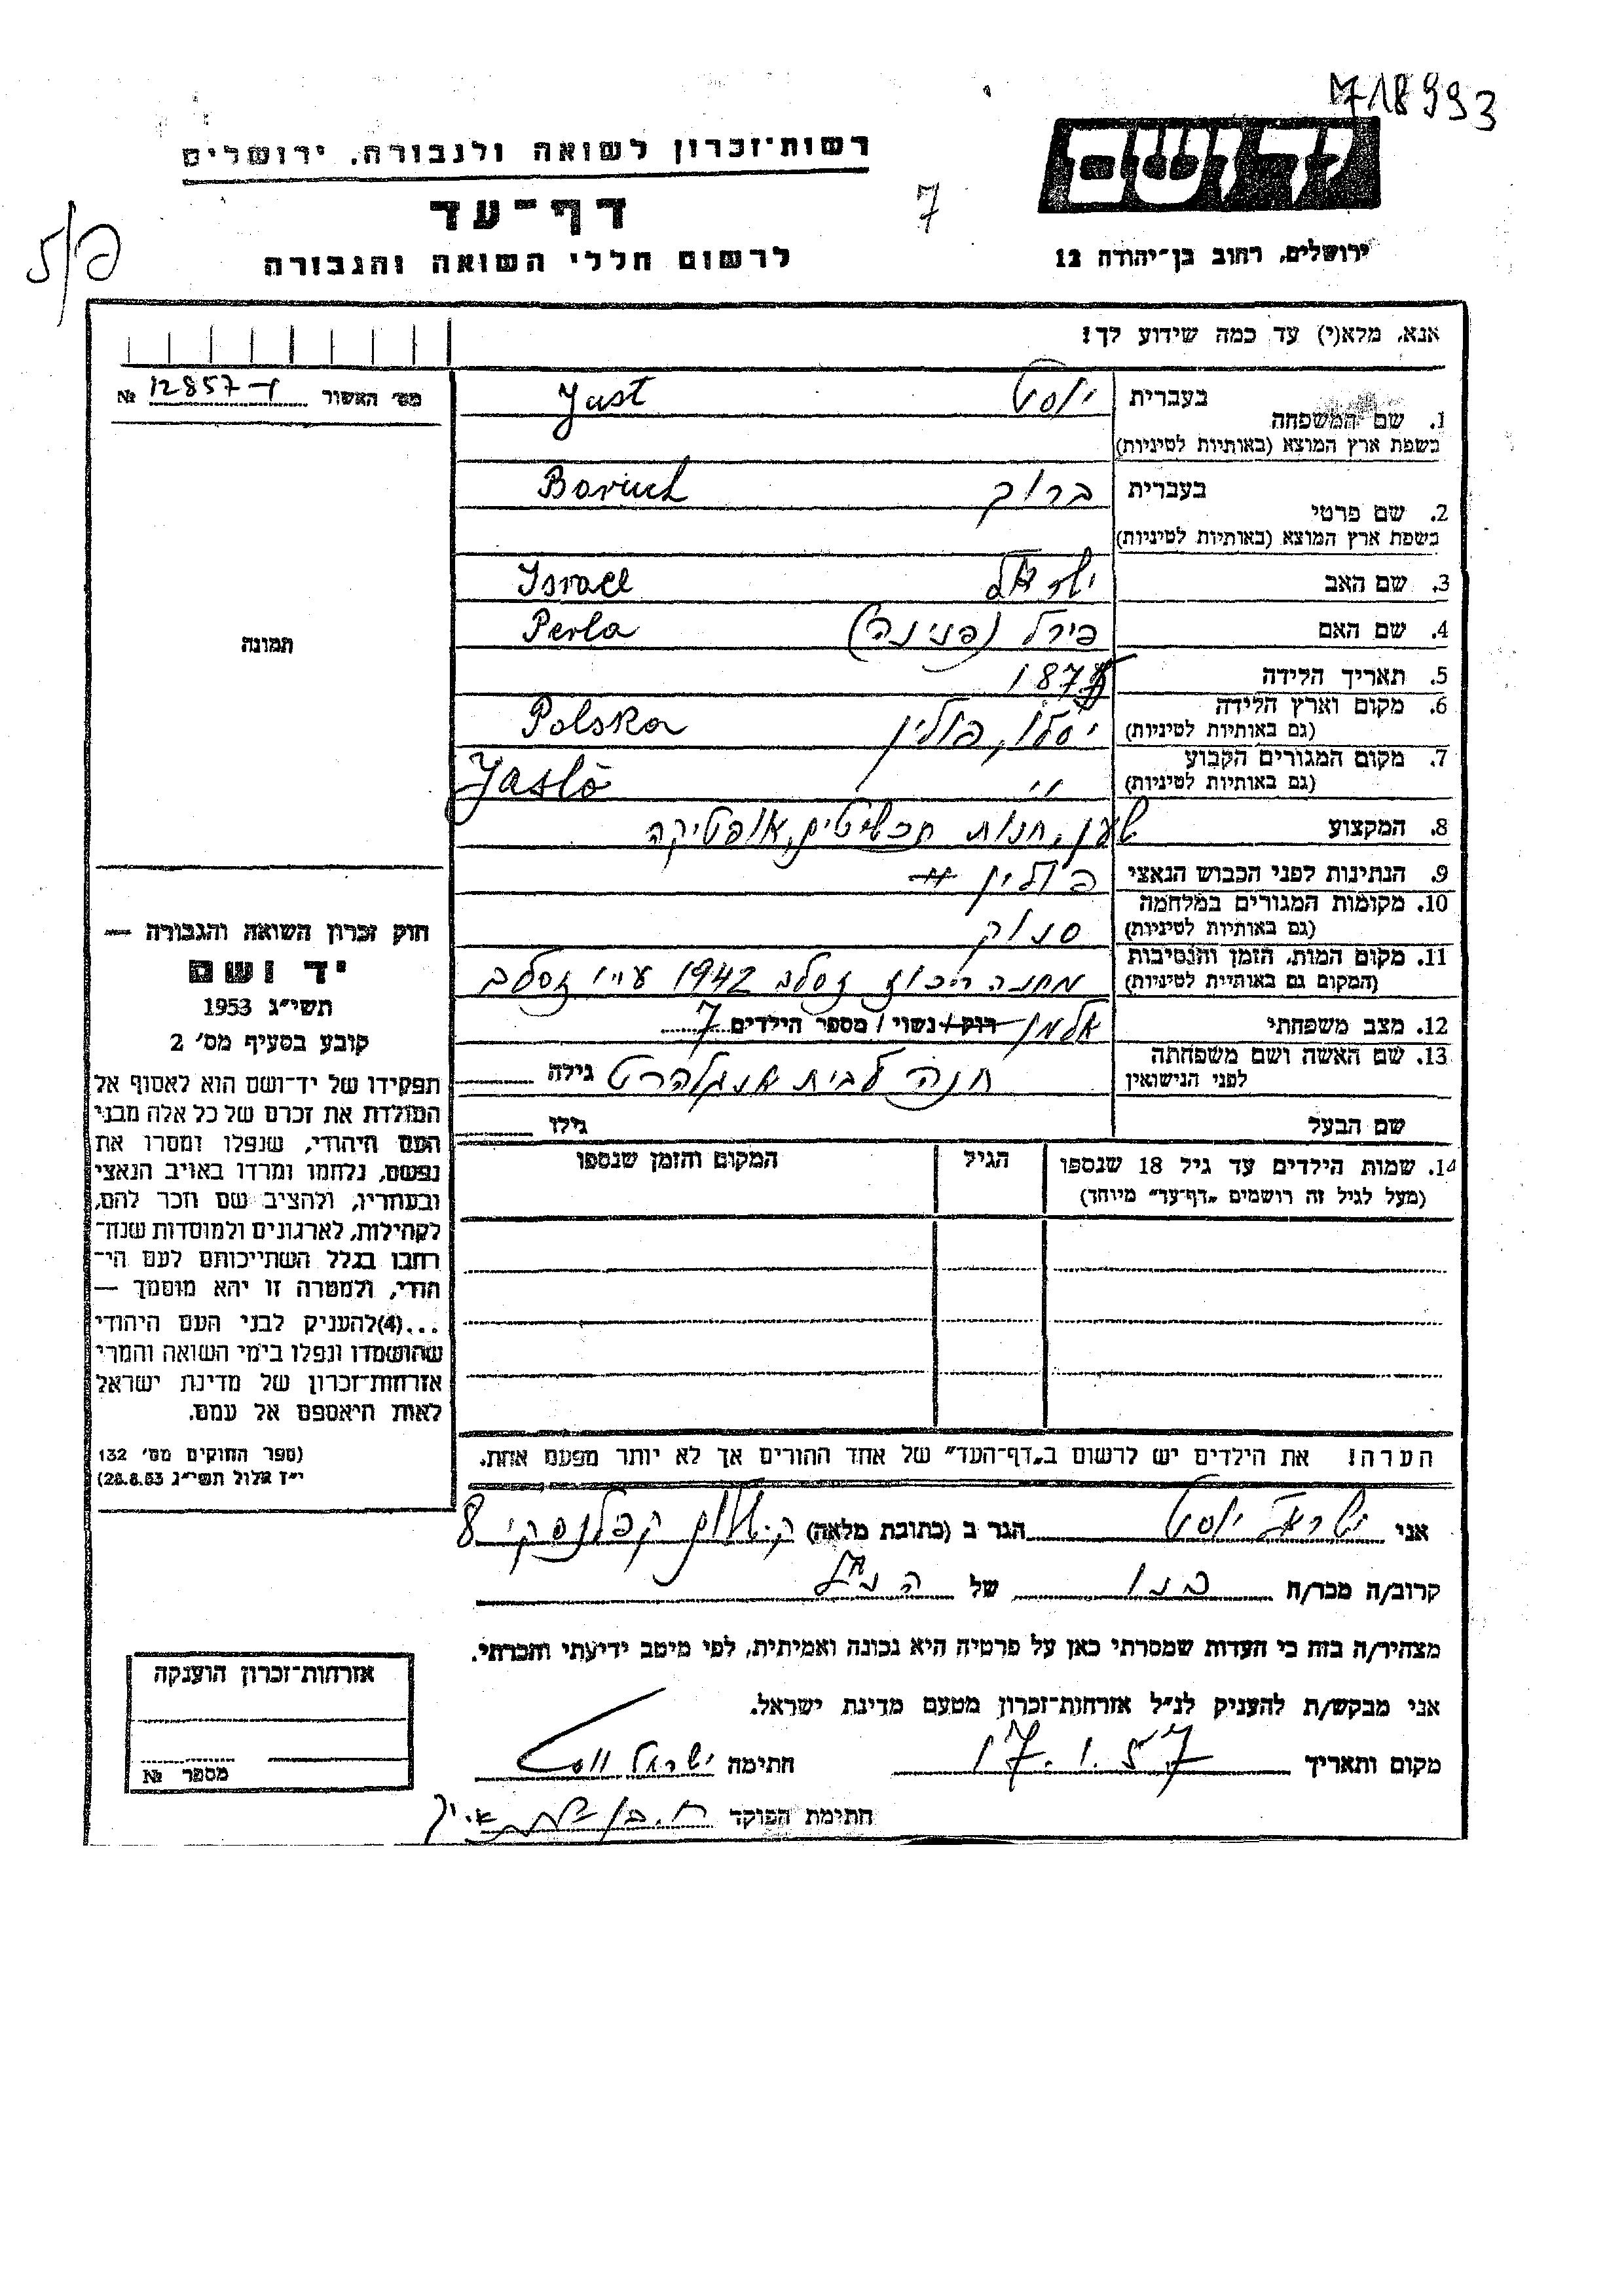 718993
רשות־זכרון לשואה ולגבורה, ירושלים
יד ושם
דף־עד
7
לרשום חללי השואה והגבורה
ירושלים, רחוב בן־יהודה 12
אנא, מלא(י) עד כמה שידוע לך!
מס׳ האשור 12857 №
1. שם המשפחה
בעברית יוסט Just
בשפת ארץ המוצא (באותיות לטיניות)
2. שם פרטי
בעברית ברוך Boruch
בשפת ארץ המוצא (באותיות לטיניות)
3. שם האב ישראל Israel
4. שם האם פירל (פנינה) Perla
תמונה
5. תאריך הלידה
6. מקום וארץ הלידה יסלו, פולין Polska
(גם באותיות לטיניות)
7. מקום המגורים הקבוע " Jasło
(גם באותיות לטיניות)
8. המקצוע שען, חנות תכשיטים, אופטיקה
9. הנתינות לפני הכבוש הנאצי פולין
10. מקומות המגורים במלחמה סנוק
(גם באותיות לטיניות)
11. מקום המות, הזמן והנסיבות מחנה ריכוז זסלב 1942 ע"י זסלב
(המקום גם באותיות לטיניות)
12. מצב משפחתי אלמן רווק/נשוי/מספר הילדים 7
13. שם האשה ושם משפחתה לפני הנישואין חנה לבית אנגלהרט גילה
שם הבעל גילו
14. שמות הילדים עד גיל 18 שנספו הגיל המקום והזמן שנספו
(מעל לגיל זה רושמים „דף־עד״ מיוחד)
הערה! את הילדים יש לרשום ב„דף־העד״ של אחד ההורים אך לא יותר מפעם אחת.
חוק זכרון השואה והגבורה —
יד ושם
תשי״ג 1953
קובע בסעיף מס׳ 2
תפקידו של יד־ושם הוא לאסוף אל
המולדת את זכרם של כל אלה מבני
העם היהודי, שנפלו ומסרו את
נפשם, נלחמו ומרדו באויב הנאצי
ובעוזריו, ולהציב שם וזכר להם,
לקהילות, לארגונים ולמוסדות שנח־
רבו בגלל השתייכותם לעם הי־
הודי, ולמטרה זו יהא מוסמך —
...(4)להעניק לבני העם היהודי
שהושמדו ונפלו בימי השואה והמרי
אזרחות־זכרון של מדינת ישראל
לאות היאספם אל עמם.
(ספר החוקים מס׳ 132
י״ז אלול תשי״ג 28.8.53)
אני ישראל יוסט הגר ב (כתובת מלאה) קפלנסקי 8
קרוב/ה מכר/ה בנו של הנ"ל
מצהיר/ה בזה כי העדות שמסרתי כאן על פרטיה היא נכונה ואמיתית, לפי מיטב ידיעתי והכרתי.
אני מבקש/ת להעניק לנ״ל אזרחות־זכרון מטעם מדינת ישראל.
מקום ותאריך 17.1.57 חתימה ישראל יוסט
חתימת הפוקד
אזרחות־זכרון הוענקה
מספר №